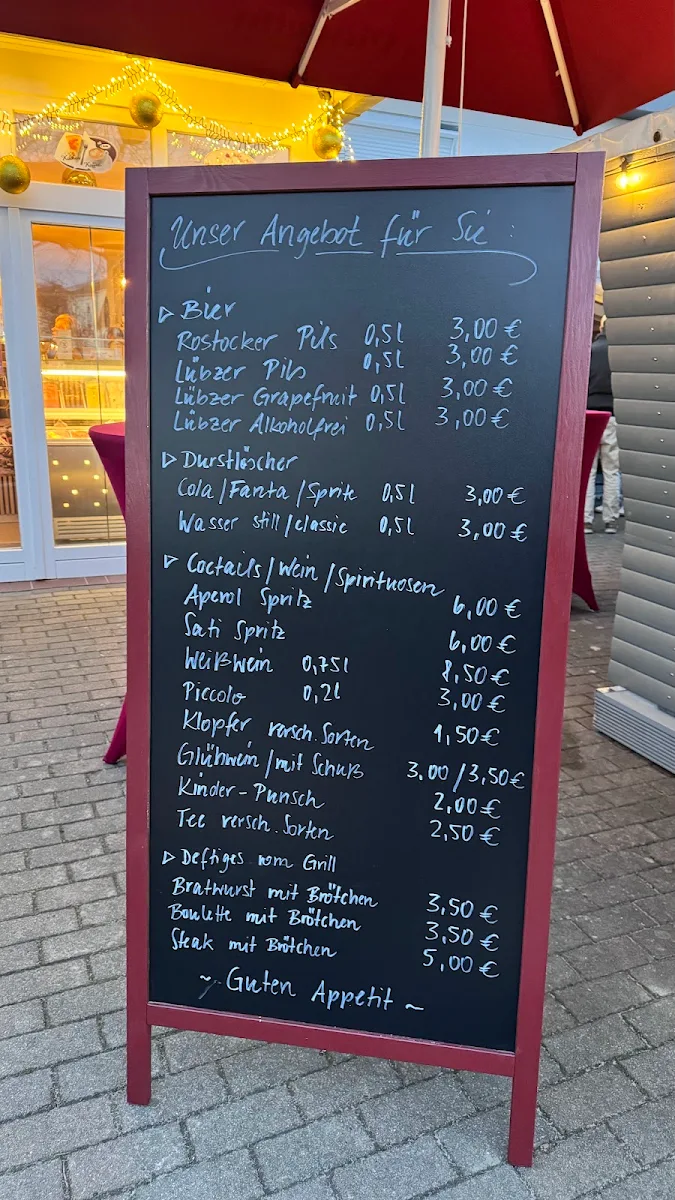 Unser Angebot für Sie:
▷ Bier
Rostocker Pils 0,5l 3,00 €
Lübzer Pils 0,5l 3,00 €
Lübzer Grapefruit 0,5l 3,00 €
Lübzer Alkoholfrei 0,5l 3,00 €
▷ Durstlöscher
Cola/Fanta/Sprite 0,5l 3,00 €
Wasser still/classic 0,5l 3,00 €
▷ Coctails/Wein/Spirituosen
Aperol Spritz 6,00 €
Sati Spritz 6,00 €
Weißwein 0,75l 8,50 €
Piccolo 0,2l 3,00 €
Klopfer versch. Sorten 1,50 €
Glühwein/mit Schuß 3,00/3,50 €
Kinder-Punsch 2,00 €
Tee versch. Sorten 2,50 €
▷ Deftiges vom Grill
Bratwurst mit Brötchen 3,50 €
Boulette mit Brötchen 3,50 €
Steak mit Brötchen 5,00 €
~ Guten Appetit ~